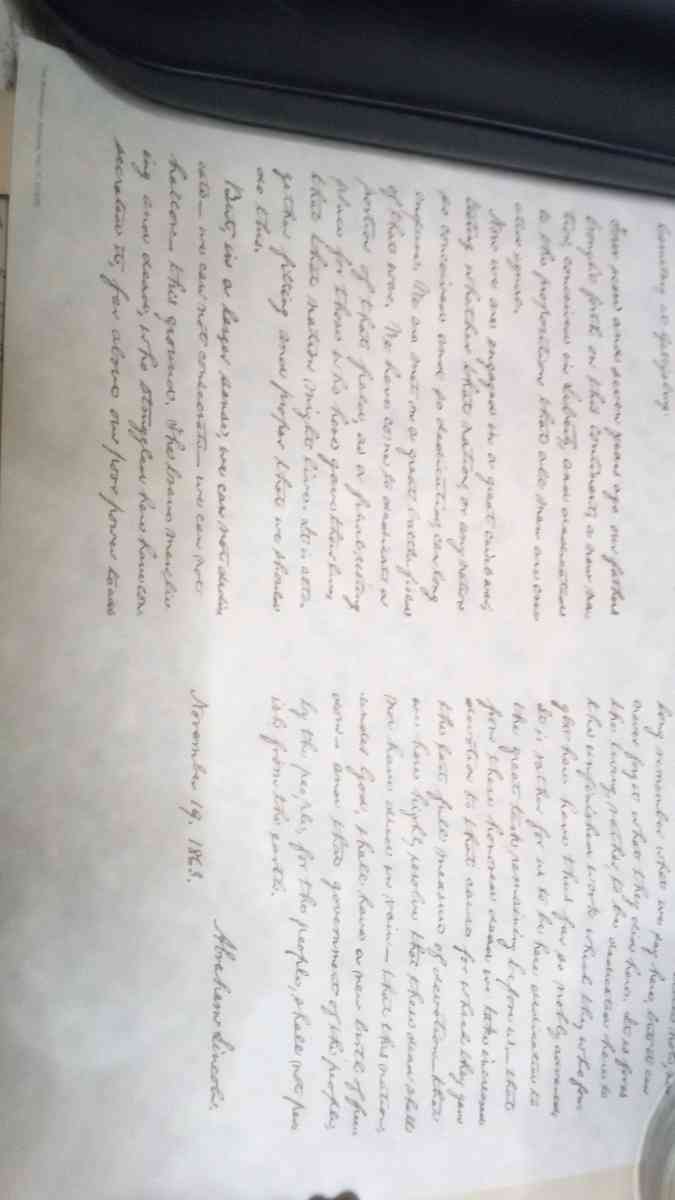 cemetery at Gettysburg.
Four score and seven years ago our fathers
brought forth on this continent, a new na-
tion, conceived in Liberty, and dedicated
to the proposition that all men are cre-
ated equal.
Now we are engaged in a great civil war,
testing whether that nation, or any nation
so conceived and so dedicated, can long
endure. We are met on a great battle-field
of that war. We have come to dedicate a
portion of that field, as a final resting
place for those who here gave their lives,
that that nation might live. It is alto-
gether fitting and proper that we should
do this.
But, in a larger sense, we can not dedi-
cate— we can not consecrate— we can not
hallow— this ground. The brave men, liv-
ing and dead, who struggled here have con-
secrated it, far above our poor power to add
long remember what we say here, but it can
never forget what they did here. It is for us
the living, rather, to be dedicated here to
the unfinished work which they who fou-
ght here have thus far so nobly advanced.
It is rather for us to be here dedicated to
the great task remaining before us— that
from these honored dead we take increased
devotion to that cause for which they gave
the last full measure of devotion— that
we here highly resolve that these dead shall
not have died in vain— that this nation,
under God, shall have a new birth of free-
dom— and that government of the people,
by the people, for the people, shall not per-
ish from the earth.
Abraham Lincoln.
November 19. 1863.